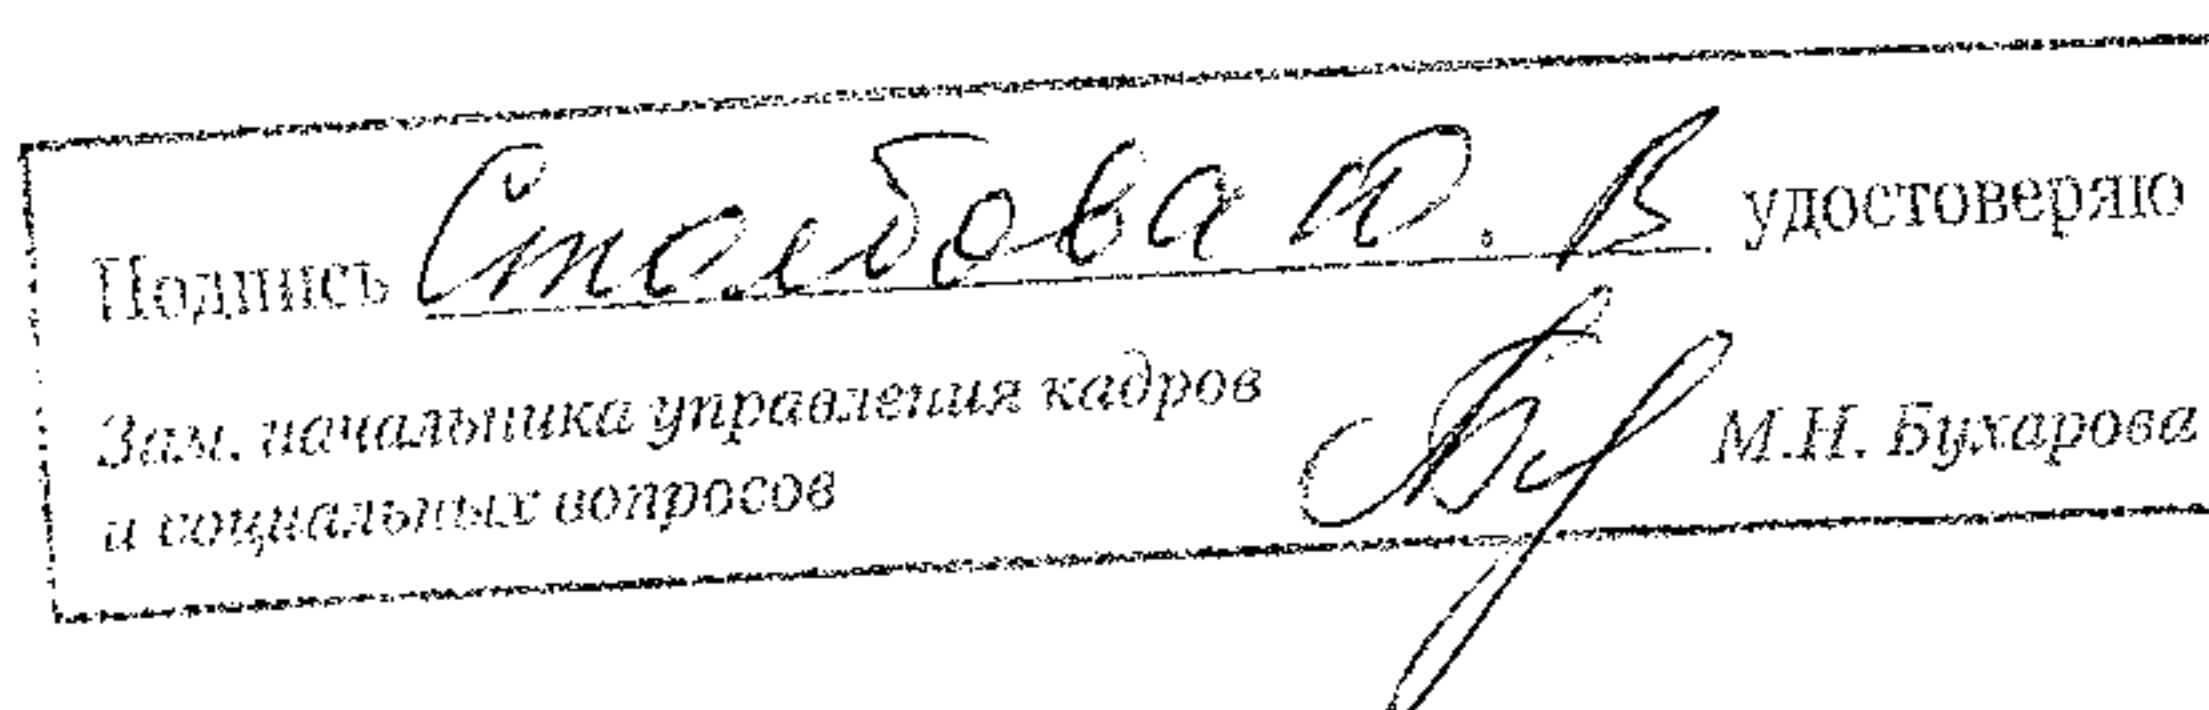 Подпись Столбова Ю. В удостоверяю
Зам. начальника управления кадров
и социальных вопросов
М.Н. Бухарова